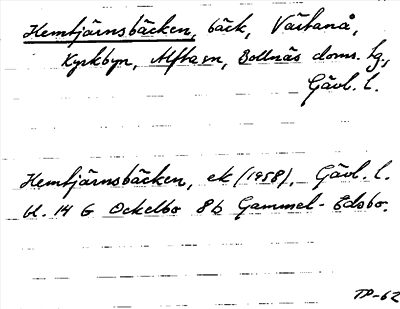 Hemtjärnsbäcken, bäck, Västanå,
Kyrkbyn, Alftaen, Bollnäs doms. hg,
Gävl. l.
Hemtjärnsbäcken, ek (1958). Gävl. l.
bl. 14 G Ockelbo 8b Gammel-Edsbo.
TP-62